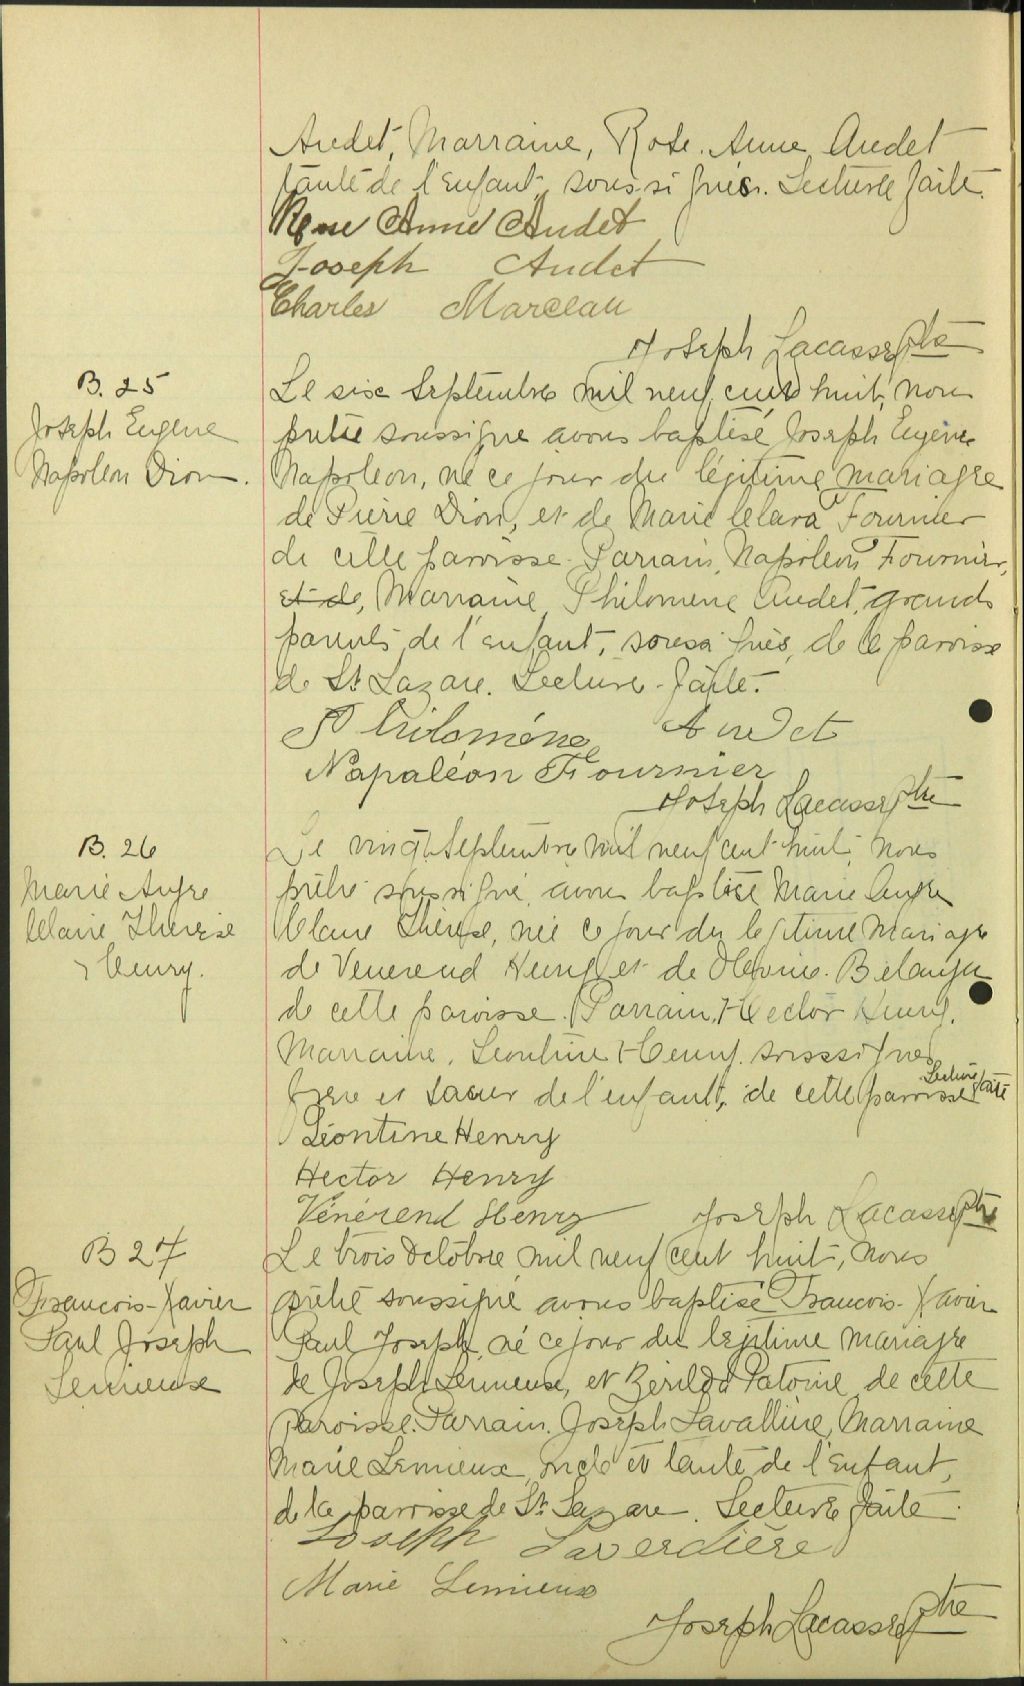 Audet, Marraine, Rose. Anne Audet
tante de l'enfant, soussignés. Lecture faite.
Rose Anne Audet
Joseph Audet
Charles Marceau
Joseph Lacasse Ptre
B. 25
Joseph Eugène
Napoléon Dion.
Le six Septembre mil neuf cent huit, nous
prêtre soussigné avons baptisé Joseph Eugène
Napoléon, né ce jour du légitime mariage
de Pierre Dion, et de Marie Clara Fournier
de cette paroisse. Parrain, Napoléon Fournier,
et de, Marraine, Philomène Audet, grands
parents de l'enfant, soussignés, de la paroisse
de St Lazare. Lecture faite.
Philomène Audet
Napaléon Fournier
Joseph Lacasse Ptre
B. 26
Marie Ange
Claire Thérèse
Henry.
Le vingt Septembre mil neuf cent huit, nous
prêtre soussigné, avons baptisé Marie Ange
Claire Thérèse, née ce jour du légitime Mariage
de Vénérend Henry et de Belanger
de cette paroisse. Parrain, Hector Henry.
Marraine, Léontine Henry. soussignés
frère et sœur de l'enfant, de cette paroisse Lecture faite
Léontine Henry
Hector Henry
Vénérend Henry
Joseph Lacasse Ptre
B 27
Francois-Xavier
Paul Joseph
Lemieux
Le trois Octobre mil neuf cent huit, nous
prêtre soussigné avons baptisé Francois-Xavier
Paul Joseph, né ce jour du légitime mariage
de Joseph Lemieux, et Zérilda Patoine de cette
paroisse. Parrain. Joseph Lavallière, Marraine
Marie Lemieux, oncle et tante de l'enfant,
de la paroisse de St Lazare. Lecture faite.
Joseph Laverdière
Marie Lemieux
Joseph Lacasse Ptre